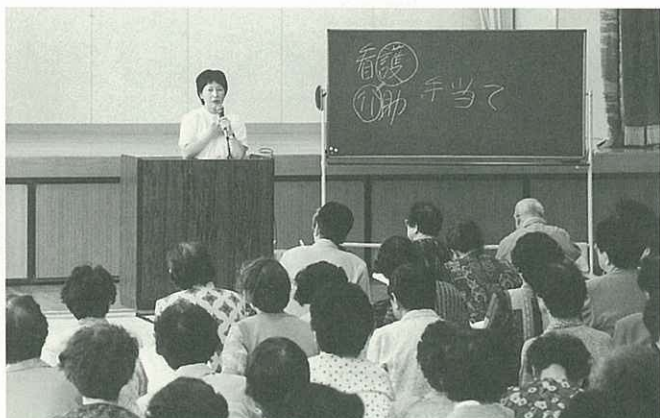 看護
介助 手当て